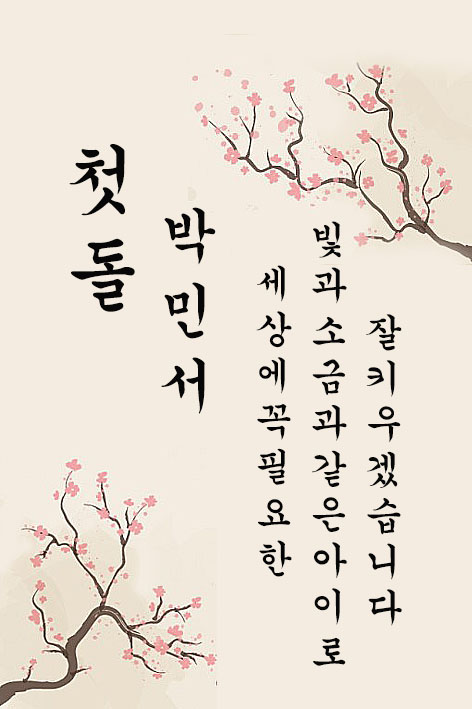 첫돌
박민서
세상에꼭필요한
빛과소금과같은아이로
잘키우겠습니다